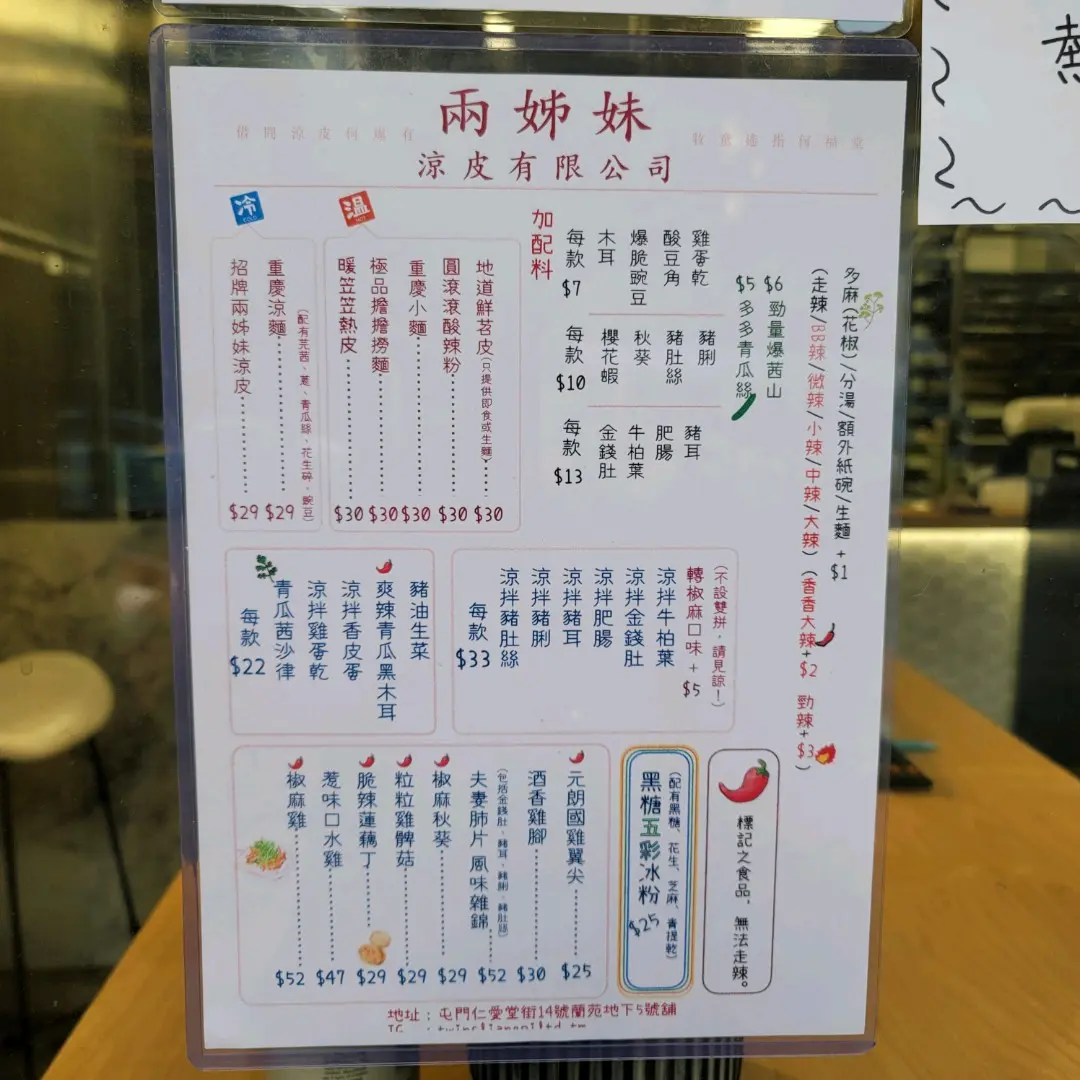 熱
兩姊妹
涼皮有限公司
冷
COLD
招牌兩姊妹涼皮 $29
重慶涼麵 $29
(配有芫茜、蔥、青瓜絲、花生碎、豌豆)
温
HOT
暖笠笠熱皮 $30
極品擔擔撈麵 $30
重慶小麵 $30
圓滾滾酸辣粉 $30
地道鮮苕皮(只提供即食或生麵) $30
加配料
每款 $7
木耳
爆脆豌豆
酸豆角
雞蛋乾
每款 $10
櫻花蝦
秋葵
豬肚絲
豬脷
每款 $13
金錢肚
牛柏葉
肥腸
豬耳
$5 多多青瓜絲
$6 勁量爆茜山
多麻(花椒)/分湯/額外紙碗/生麵 + $1
(走辣/BB辣/微辣/小辣/中辣/大辣)(香香大辣+ $2 勁辣+ $3)
每款 $22
青瓜茜沙律
涼拌雞蛋乾
涼拌香皮蛋
爽辣青瓜黑木耳
豬油生菜
每款 $33
涼拌豬肚絲
涼拌豬脷
涼拌豬耳
涼拌肥腸
涼拌金錢肚
涼拌牛柏葉
轉椒麻口味 + $5
(不設雙拼，請見諒！)
椒麻雞 $52
惹味口水雞 $47
脆辣蓮藕丁 $29
粒粒雞髀菇 $29
椒麻秋葵 $29
夫妻肺片 風味雜錦 $52
(包括金錢肚、豬耳、豬脷、豬肚絲)
酒香雞腳 $30
元朗國雞翼尖 $25
黑糖五彩冰粉 $25
(配有黑糖、花生、芝麻、青提乾)
標記之食品，無法走辣。
地址：屯門仁愛堂街14號蘭苑地下5號舖